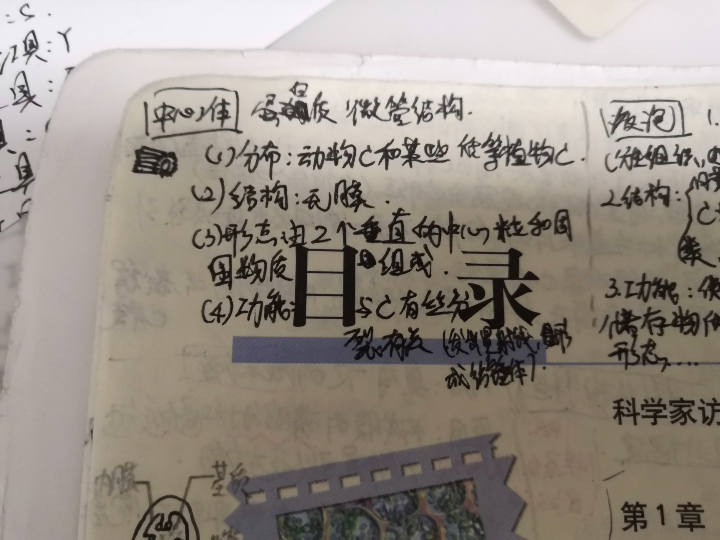 :S.
工具:Y
具:
具
中心体 蛋白质 微管结构.
(1)分布:动物C和某些低等植物C.
(2)结构:无膜.
(3)形态:由2个垂直的中心粒和周
围物质组成.
(4)功能:与C有丝分
裂有关(发出星射线,形
成纺锤体).
目录
液泡 1.
2.结构:
C
3.功能:
储存物
形态....
科学家访
第1章
内膜
基质